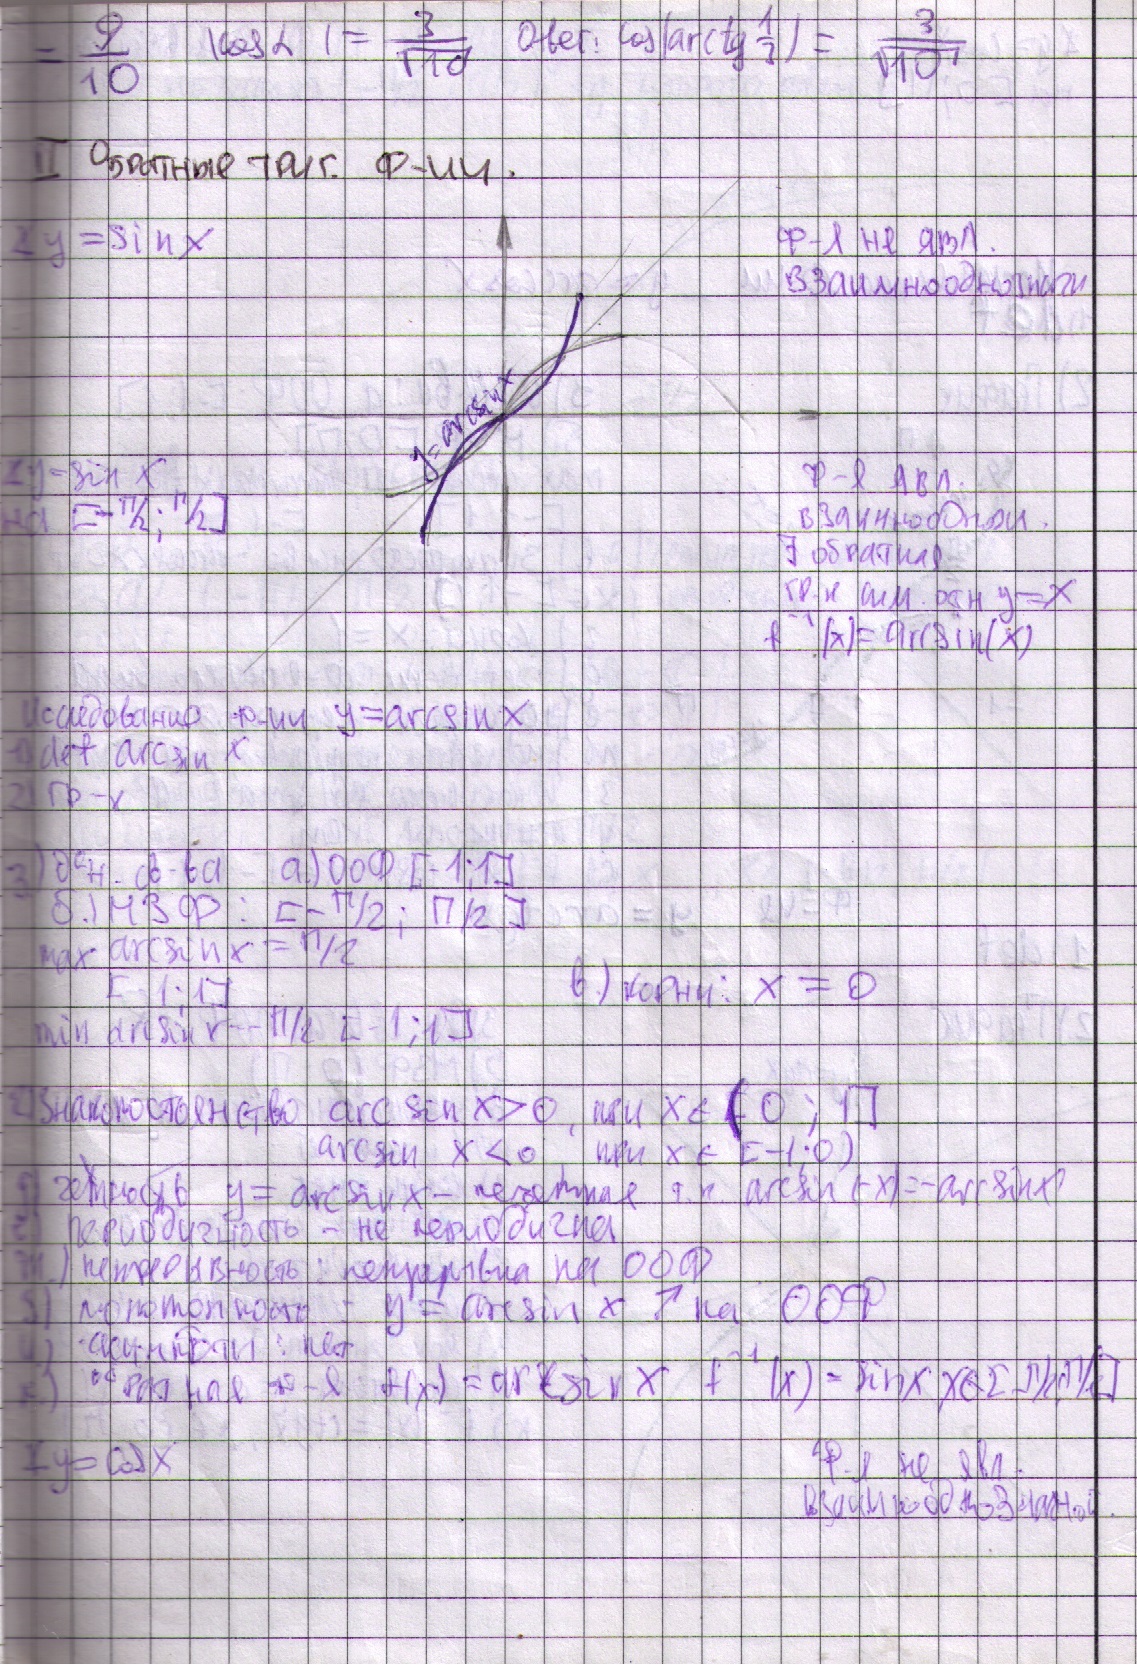 = 9/10 |cos α| = 3/√10 Ответ: cos(arctg 1/3) = 3/√10
II Обратные триг. ф-ии.
y = sin x
ф-я не явл.
взаимнооднозначн
y = arcsin x
y = sin x
на [-π/2; π/2]
ф-я явл.
взаимноодн
∃ обратная
гр-к сим. отн y = x
f⁻¹(x) = arcsin(x)
Исследование ф-ии y = arcsin x
1) def arcsin x
2) гр-к
3) осн. св-ва а.) ООФ [-1;1]
б.) МЗФ: [-π/2; π/2]
max arcsin x = π/2
[-1;1]
в.) корни: x = 0
min arcsin x = -π/2 [-1;1]
г) Знакопостоянство arcsin x > 0, при x ∈ (0; 1]
arcsin x < 0, при x ∈ [-1;0)
д) четность y = arcsin x - нечетная т.к. arcsin(-x) = -arcsin x
периодичность - не периодична
ж.) непрерывность: непрерывна на ООФ
з) монотонность - y = arcsin x ↗ на ООФ
и) асимптоты: нет
к.) обратная ф-я f(x) = arcsin x f⁻¹(x) = sin x, x ∈ [-π/2; π/2]
y = cos x
ф-я не явл.
взаимнооднозначной.